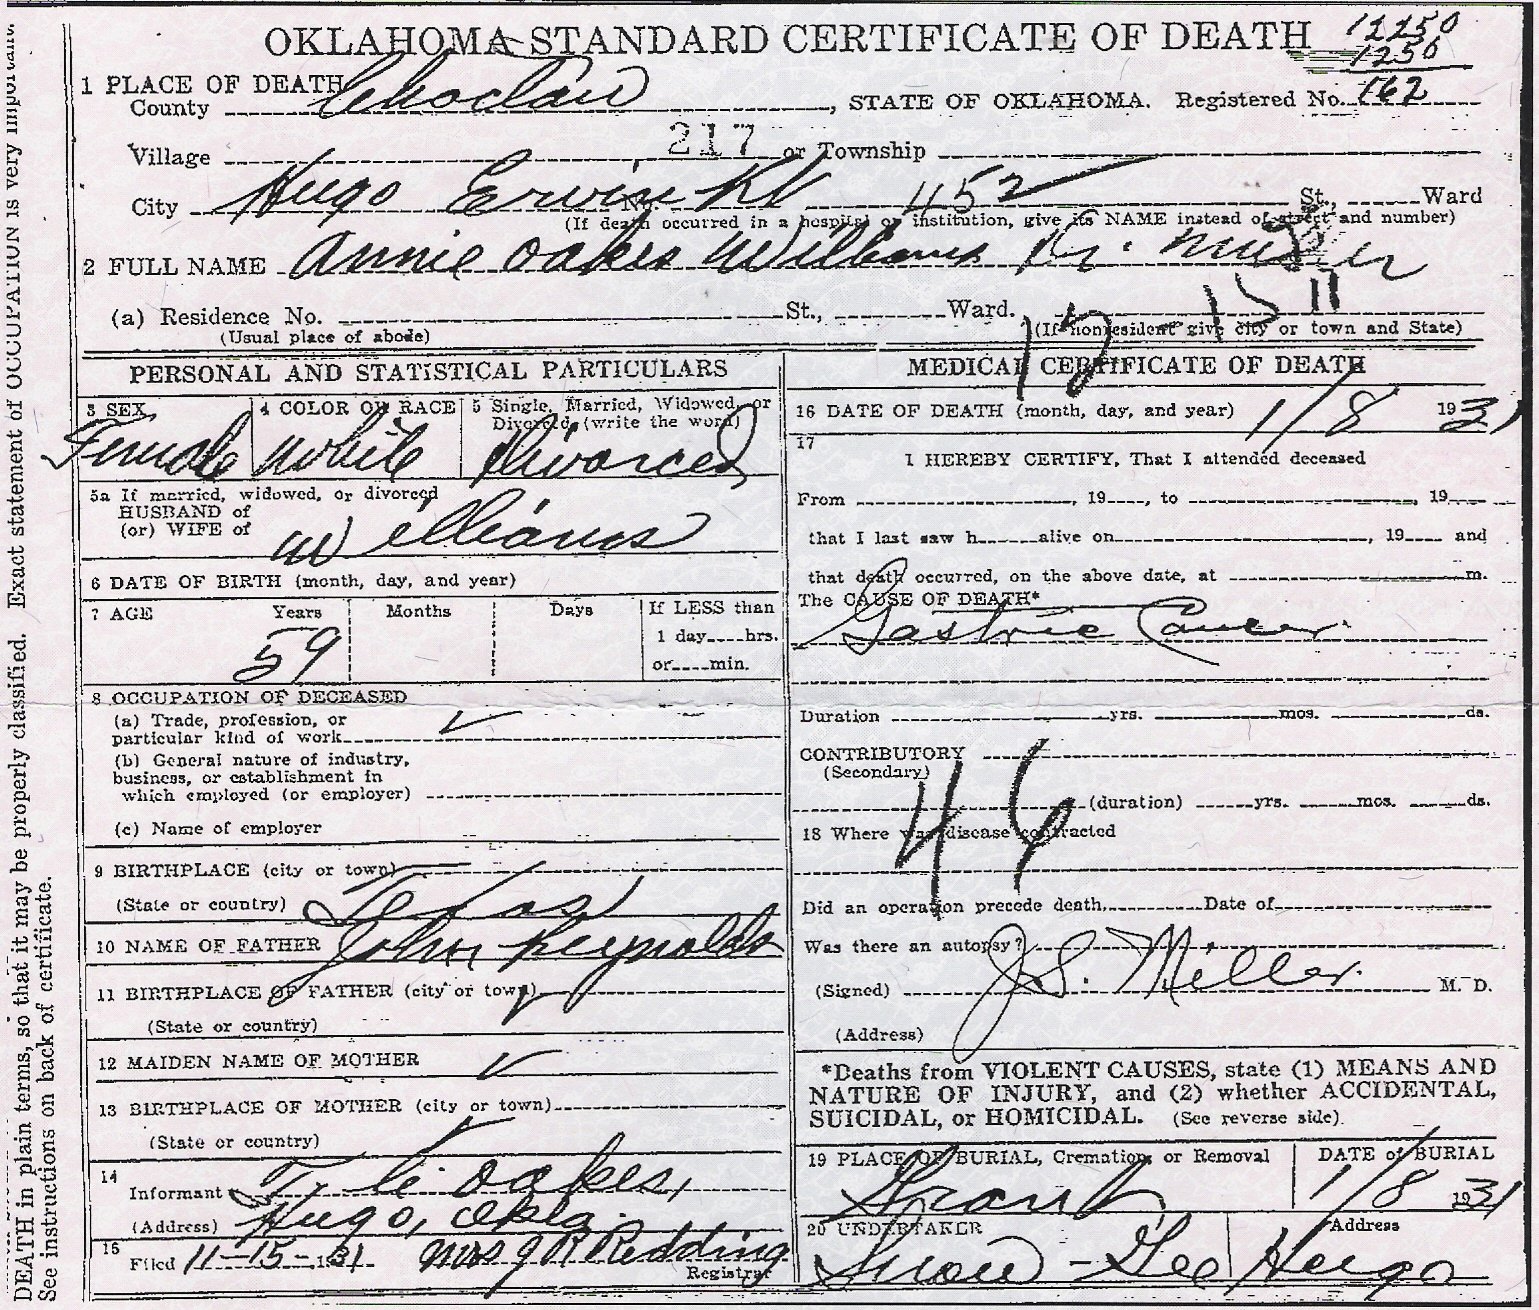 OKLAHOMA STANDARD CERTIFICATE OF DEATH 12250
1250
1 PLACE OF DEATH
County Choctaw, STATE OF OKLAHOMA. Registered No. 162
Village 217 or Township
City Hugo Erwin No. 452 St., Ward
(If death occurred in a hospital or institution, give its NAME instead of street and number)
2 FULL NAME Annie Oakes Williams
(a) Residence No. St., Ward.
(Usual place of abode) (If nonresident give city or town and State)
PERSONAL AND STATISTICAL PARTICULARS
3 SEX
Female
4 COLOR OR RACE
White
5 Single, Married, Widowed, or
Divorced (write the word)
Divorced
5a If married, widowed, or divorced
HUSBAND of
(or) WIFE of Williams
6 DATE OF BIRTH (month, day, and year)
7 AGE Years Months Days If LESS than
59 1 day hrs.
or min.
8 OCCUPATION OF DECEASED
(a) Trade, profession, or
particular kind of work
(b) General nature of industry,
business, or establishment in
which employed (or employer)
(c) Name of employer
9 BIRTHPLACE (city or town)
(State or country) Texas
10 NAME OF FATHER John Reynolds
11 BIRTHPLACE OF FATHER (city or town)
(State or country)
12 MAIDEN NAME OF MOTHER
13 BIRTHPLACE OF MOTHER (city or town)
(State or country)
14
Informant Oakes,
(Address) Hugo, Okla.
15
Filed 11-15-1931 Mrs J R Redding
Registrar
MEDICAL CERTIFICATE OF DEATH
16 DATE OF DEATH (month, day, and year) 1/8 1931
17
I HEREBY CERTIFY, That I attended deceased
From , 19 , to , 19
that I last saw h alive on , 19 and
that death occurred, on the above date, at m.
The CAUSE OF DEATH*
Gastric Cancer
Duration yrs. mos. ds.
CONTRIBUTORY
(Secondary)
46
(duration) yrs. mos. ds.
18 Where was disease contracted
Did an operation precede death Date of
Was there an autopsy?
(Signed) J.S. Miller M. D.
(Address)
*Deaths from VIOLENT CAUSES, state (1) MEANS AND
NATURE OF INJURY, and (2) whether ACCIDENTAL,
SUICIDAL, or HOMICIDAL. (See reverse side).
19 PLACE OF BURIAL, Cremation, or Removal DATE of BURIAL
Grant 1/8 1931
20 UNDERTAKER Address
Snow-Gee Hugo
DEATH in plain terms, so that it may be properly classified. Exact statement of OCCUPATION is very important.
See instructions on back of certificate.